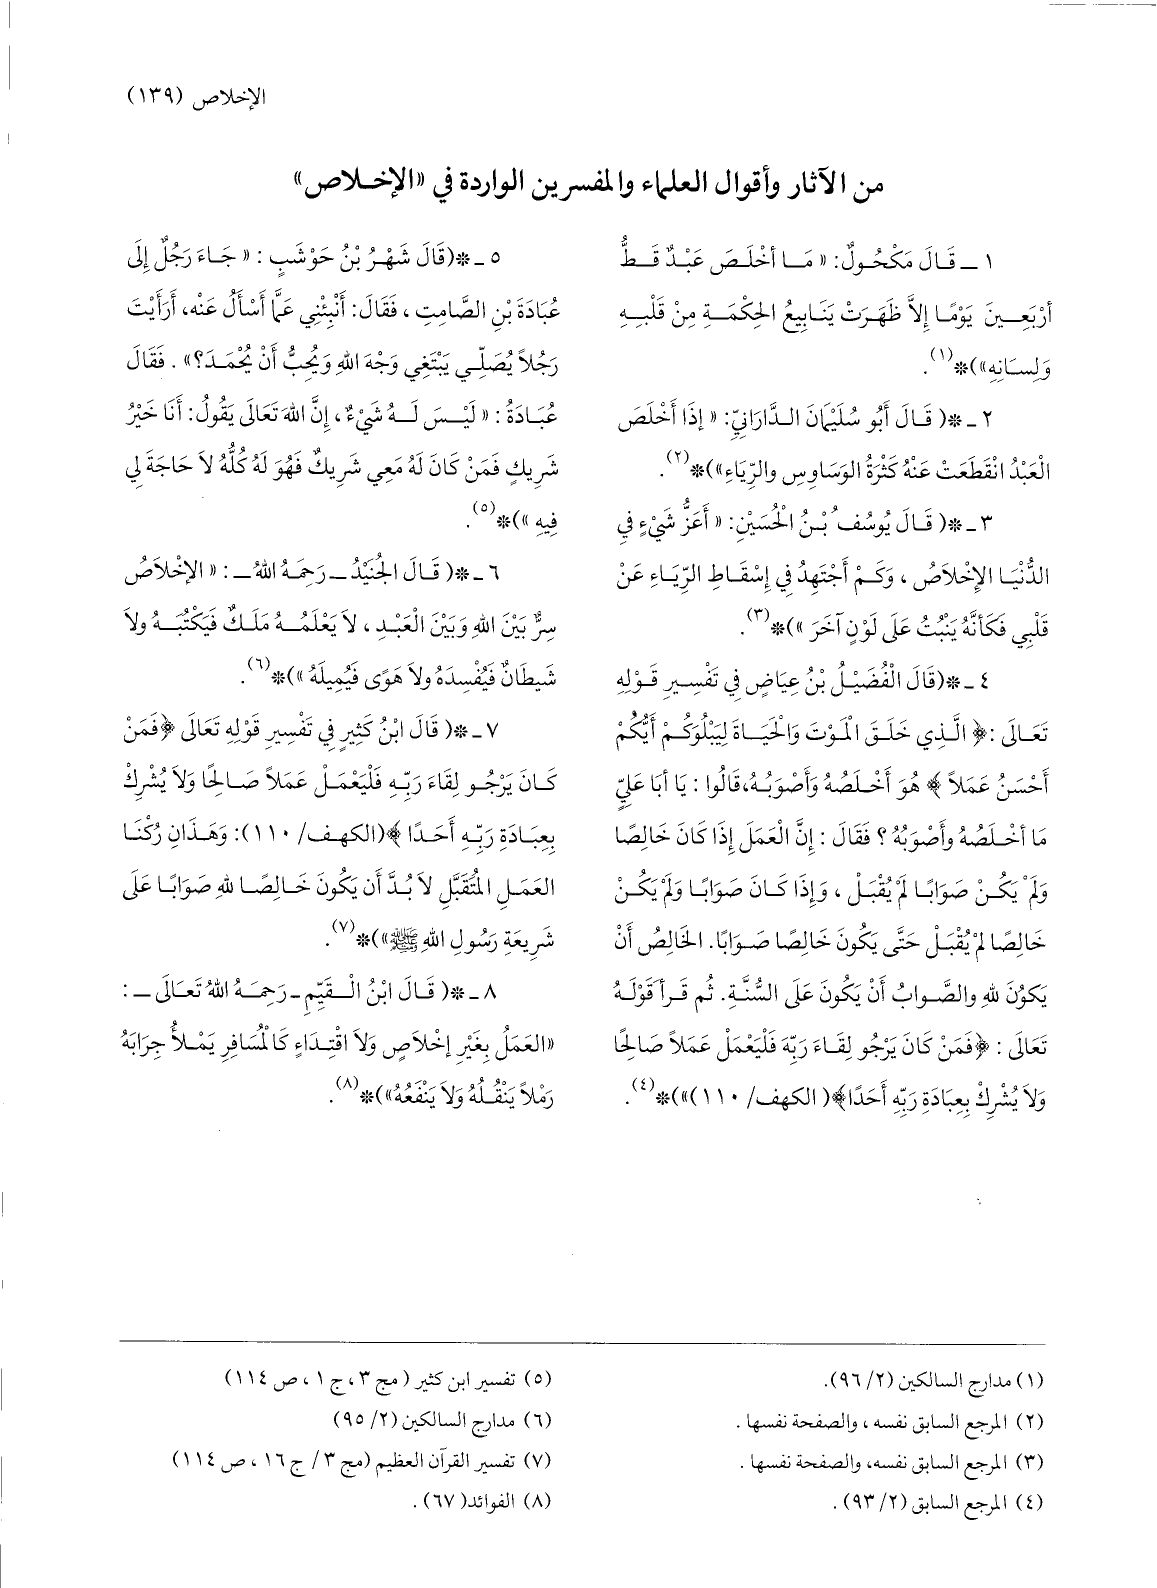 الإخلاص (١٣٩)
من الآثار وأقوال العلماء والمفسرين الواردة في «الإخلاص»
١ ــ قَالَ مَكْحُولٌ: «مَا أخْلَصَ عَبْدٌ قَطُّ
أرْبَعِينَ يَوْمًا إلاَّ ظَهَرَتْ يَنَابِيعُ الحِكْمَةِ مِنْ قَلْبِهِ
وَلِسَانِهِ»)*(١).
٢ ـ *( قَالَ أَبُو سُلَيْمَانَ الدَّارَانِيّ: « إذَا أَخْلَصَ
الْعَبْدُ انْقَطَعَتْ عَنْهُ كَثْرَةُ الوَسَاوِسِ والرِّيَاءِ»)*(٢).
٣ ـ *( قَالَ يُوسُفُ بْنُ الْحُسَيْنِ: « أَعَزُّ شَيْءٍ فِي
الدُّنْيَا الإِخْلاَصُ ، وَكَمْ أَجْتَهِدُ فِي إِسْقَاطِ الرِّيَاءِ عَنْ
قَلْبِي فَكَأَنَّهُ يَنْبُتُ عَلَى لَوْنٍ آخَرَ »)*(٣).
٤ ـ *(قَالَ الْفُضَيْلُ بْنُ عِيَاضٍ فِي تَفْسِيرِ قَوْلِهِ
تَعَالَى :﴿ الَّذِي خَلَقَ الْمَوْتَ وَالْحَيَاةَ لِيَبْلُوَكُمْ أَيُّكُمْ
أَحْسَنُ عَمَلاً ﴾ هُوَ أَخْلَصُهُ وَأَصْوَبُهُ،قَالُوا : يَا أَبَا عَلِيٍّ
مَا أخْلَصُهُ وأَصْوَبُهُ ؟ فَقَالَ : إِنَّ الْعَمَلَ إِذَا كَانَ خَالِصًا
وَلَمْ يَكُنْ صَوَابًا لَمْ يُقْبَلْ ، وَإِذَا كَانَ صَوَابًا وَلَمْ يَكُنْ
خَالِصًا لَمْ يُقْبَلْ حَتَّى يَكُونَ خَالِصًا صَوَابًا. الخَالِصُ أَنْ
يَكوُنَ للهِ والصَّوابُ أَنْ يَكُونَ عَلَى السُّنَّةِ. ثُم قَرأَ قَوْلَهُ
تَعَالَى : ﴿فَمَنْ كَانَ يَرْجُو لِقَاءَ رَبِّهَ فَلْيَعْمَلْ عَمَلاً صَالِحًا
وَلاَ يُشْرِكْ بِعِبَادَةِ رَبِّهِ أَحَدًا﴾( الكهف/ ١١٠)»)*(٤).
٥ ـ *(قَالَ شَهْرُ بْنُ حَوْشَبٍ : « جَاءَ رَجُلٌ إِلَى
عُبَادَةَ بْنِ الصَّامِتِ ، فَقَالَ: أَنْبِئْنِي عَمَّا أَسْأَلُ عَنْه، أَرَأَيْتَ
رَجُلاً يُصَلِّي يَبْتَغِي وَجْهَ اللهِ وَيُحِبُّ أَنْ يُحْمَدَ؟» . فَقَالَ
عُبَادَةُ : « لَيْسَ لَهُ شَيْءٌ ، إِنَّ اللهَ تَعَالَى يَقُولُ: أَنَا خَيْرُ
شَرِيكٍ فَمَنْ كَانَ لَهُ مَعِي شَرِيكٌ فَهُوَ لَهُ كُلُّهُ لاَ حَاجَةَ لِي
فِيهِ »)*(٥).
٦ ـ *( قَالَ الْجُنَيْدُ ــ رَحِمَهُ اللهُ ــ : « الإخْلاَصُ
سِرٌّ بَيْنَ اللهِ وَبَيْنَ الْعَبْدِ ، لاَ يَعْلَمُهُ مَلَكٌ فَيَكْتُبَهُ ولاَ
شَيطَانٌ فَيُفْسِدَهُ ولاَ هَوًى فَيُمِيلَهُ »)*(٦).
٧ ـ *( قَالَ ابْنُ كَثِيرٍ فِي تَفْسِيرِ قَوْلِهِ تَعَالَى ﴿فَمَنْ
كَانَ يَرْجُو لِقَاءَ رَبِّهِ فَلْيَعْمَلْ عَمَلاً صَالِحًا وَلاَ يُشْرِكْ
بِعِبَادَةِ رَبِّهِ أَحَدًا ﴾(الكهف/ ١١٠): وَهَذَانِ رُكْنَا
العَمَلِ الْمُتَقَبَّلِ لاَ بُدَّ أن يَكُونَ خَالِصًا للهِ صَوَابًا عَلَى
شَرِيعَةِ رَسُولِ اللهِ ﷺ»)*(٧).
٨ ـ *( قَالَ ابْنُ الْقَيِّمِ ـ رَحِمَهُ اللهُ تَعَالَى ــ :
«العَمَلُ بِغَيْرِ إخْلاَصٍ وَلاَ اقْتِدَاءٍ كَالْمُسَافِرِ يَمْلأُ جِرَابَهُ
رَمْلاً يَنْقُلُهُ وَلاَ يَنْفَعُهُ»)*(٨).
(١) مدارج السالكين (٢/ ٩٦).
(٢) المرجع السابق نفسه ، والصفحة نفسها .
(٣) المرجع السابق نفسه، والصفحة نفسها .
(٤) المرجع السابق (٢/ ٩٣).
(٥) تفسير ابن كثير ( مج ٣ ، ج ١ ، ص ١١٤)
(٦) مدارج السالكين (٢/ ٩٥)
(٧) تفسير القرآن العظيم (مج ٣ / ج ١٦ ، ص ١١٤)
(٨) الفوائد( ٦٧) .